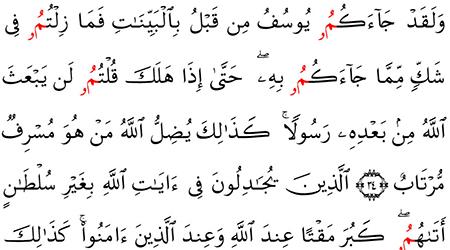 وَلَقَدْ جَآءَكُمُۥ يُوسُفُ مِن قَبْلُ بِالْبَيِّنَٰتِ فَمَا زِلْتُمُۥ فِى
شَكٍّ مِّمَّا جَآءَكُمُۥ بِهِۦۖ حَتَّىٰٓ إِذَا هَلَكَ قُلْتُمُۥ لَن يَبْعَثَ
اَ۬للَّهُ مِنۢ بَعْدِهِۦ رَسُولًاۚ كَذَٰلِكَ يُضِلُّ اُ۬للَّهُ مَنْ هُوَ مُسْرِفٌ
مُّرْتَابٌ ٣٤ اَ۬لَّذِينَ يُجَٰدِلُونَ فِىٓ ءَايَٰتِ اِ۬للَّهِ بِغَيْرِ سُلْطَٰنٍ
أَتَىٰهُمُۥۖ كَبُرَ مَقْتًا عِندَ اَ۬للَّهِ وَعِندَ اَ۬لَّذِينَ ءَامَنُواْۚ كَذَٰلِكَ